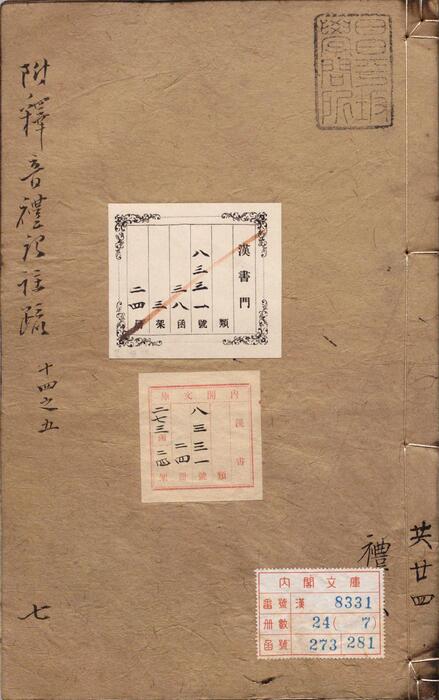 昌平坂
學問所
附釋音禮記註疏 十四之五
七
漢書門
類
八三三一號
三八函
三架
二四冊
內閣文庫
漢書
類
八三三一號
二四冊
二七三函
共廿四
禮
內閣文庫
番號 漢 8331
冊數 24( 7)
函號 273 281